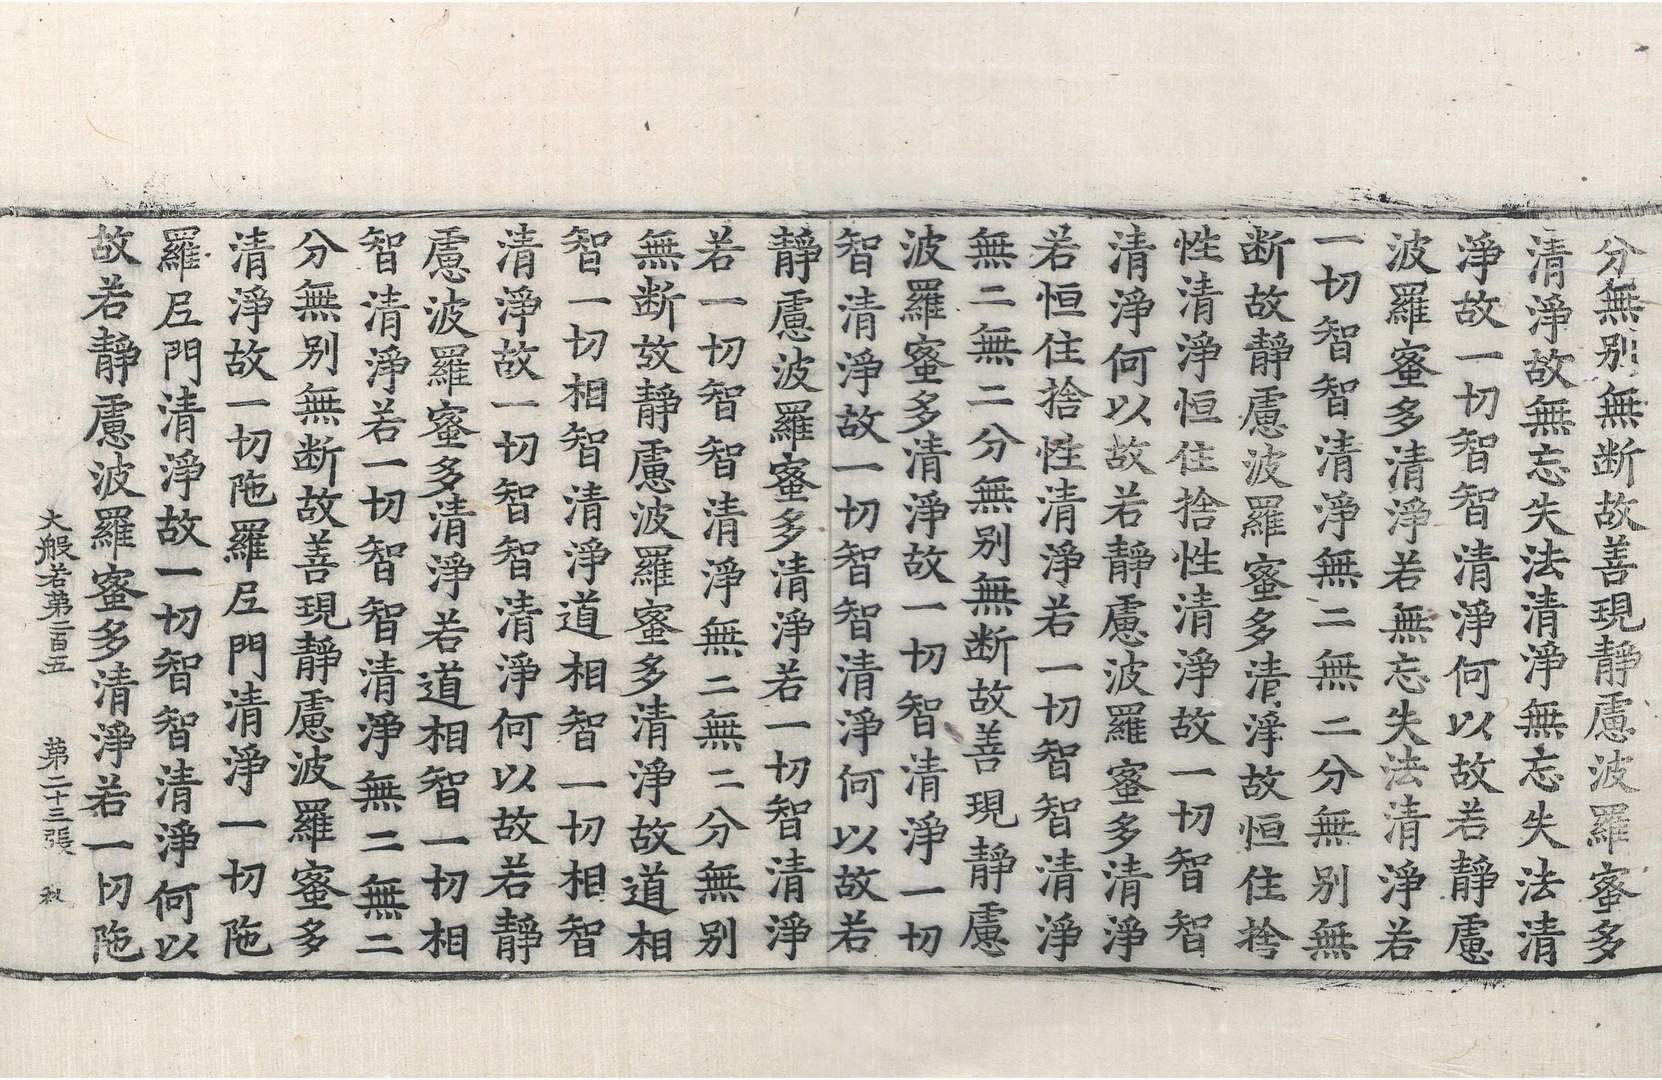 分無別無断故善現靜慮波羅蜜多
清淨故無忘失法清淨無忘失法清
淨故一切智智清淨何以故若靜慮
波羅蜜多清淨若無忘失法清淨若
一切智智清淨無二無二分無別無
断故靜慮波羅蜜多清淨故恒住捨
性清淨恒住捨性清淨故一切智智
清淨何以故若靜慮波羅蜜多清淨
若恒住捨性清淨若一切智智清淨
無二無二分無別無断故善現靜慮
波羅蜜多清淨故一切智清淨一切
智清淨故一切智智清淨何以故若
靜慮波羅蜜多清淨若一切智清淨
若一切智智清淨無二無二分無別
無断故靜慮波羅蜜多清淨故道相
智一切相智清淨道相智一切相智
清淨故一切智智清淨何以故若靜
慮波羅蜜多清淨若道相智一切相
智清淨若一切智智清淨無二無二
分無別無断故善現靜慮波羅蜜多
清淨故一切陁羅尼門清淨一切陁
羅尼門清淨故一切智智清淨何以
故若靜慮波羅蜜多清淨若一切陁
大般若第二百五 第二十三張